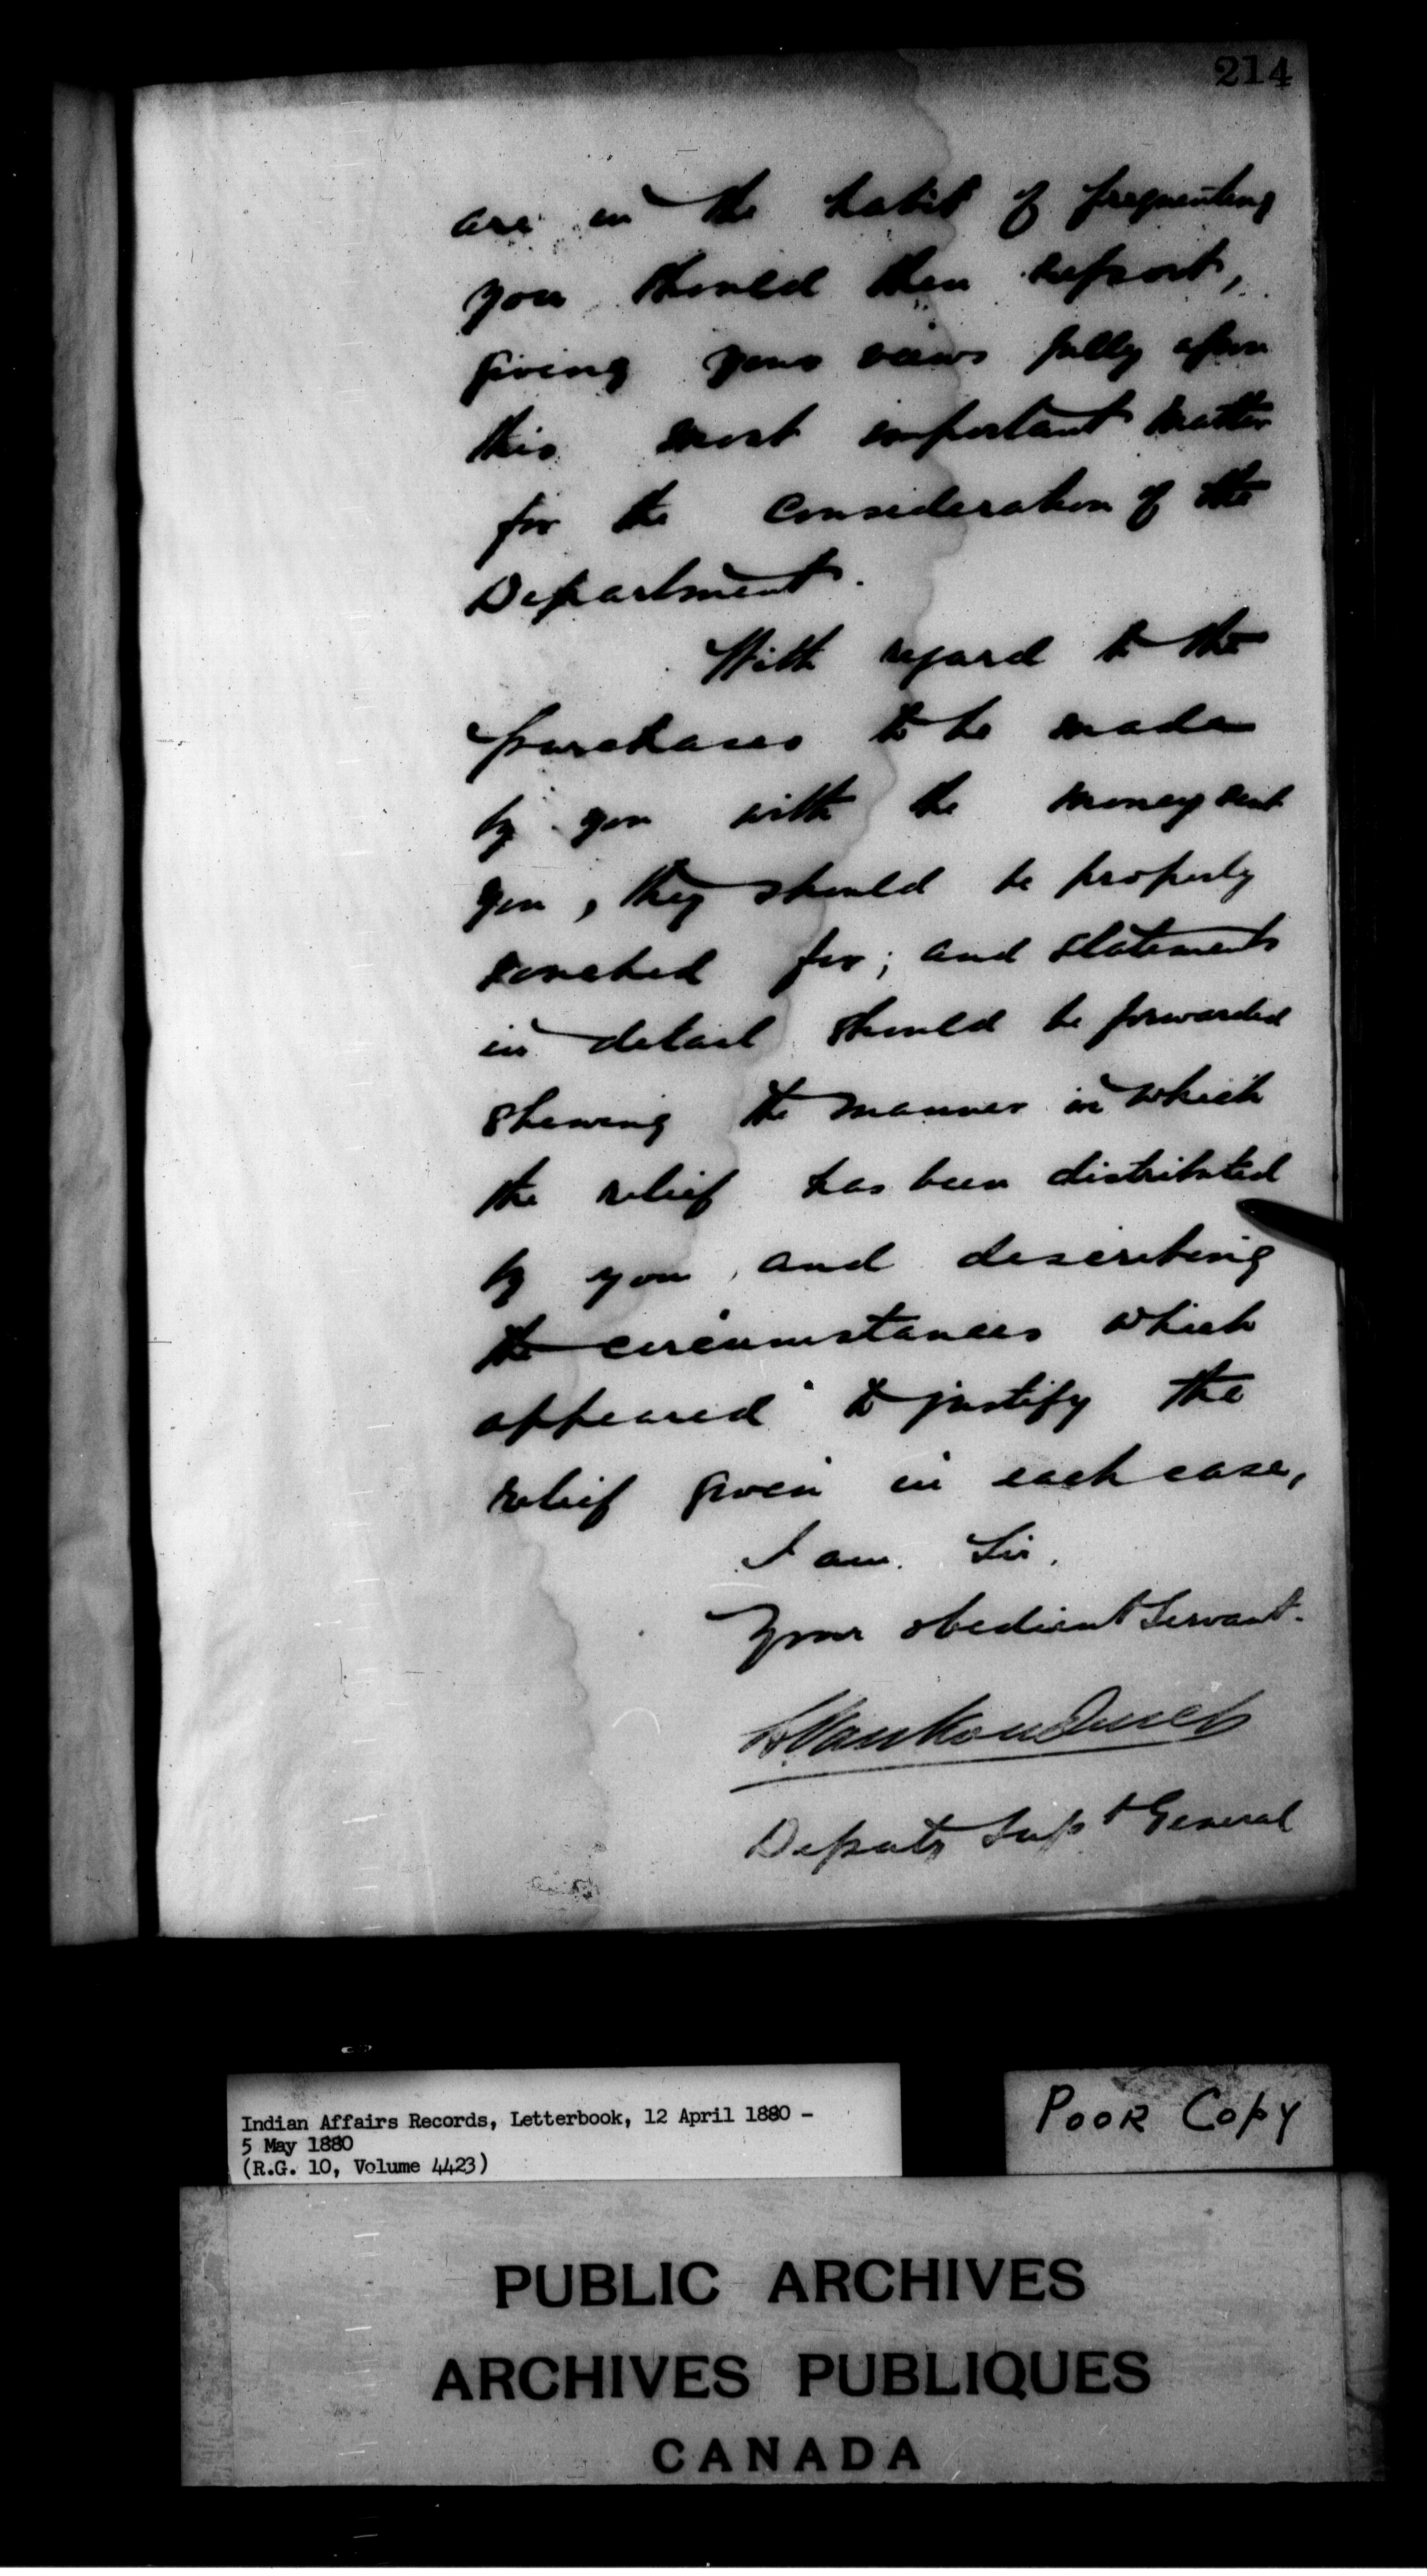 214
are in the habit of frequenting
you should then report,
giving your views fully upon
this most important matter
for the consideration of the
Department.
With regard to the
purchases to be made
by you with the money sent
you, they should be properly
vouched for; and statements
in detail should be forwarded
shewing the manner in which
the relief has been distributed
by you, and describing
the circumstances which
appeared to justify the
relief given in each case,
I am. Sir.
Your obedient Servant.
L. VanKoughnet
Deputy Supt General
Indian Affairs Records, Letterbook, 12 April 1880 -
5 May 1880
(R.G. 10, Volume 4423)
POOR COPY
PUBLIC ARCHIVES
ARCHIVES PUBLIQUES
CANADA